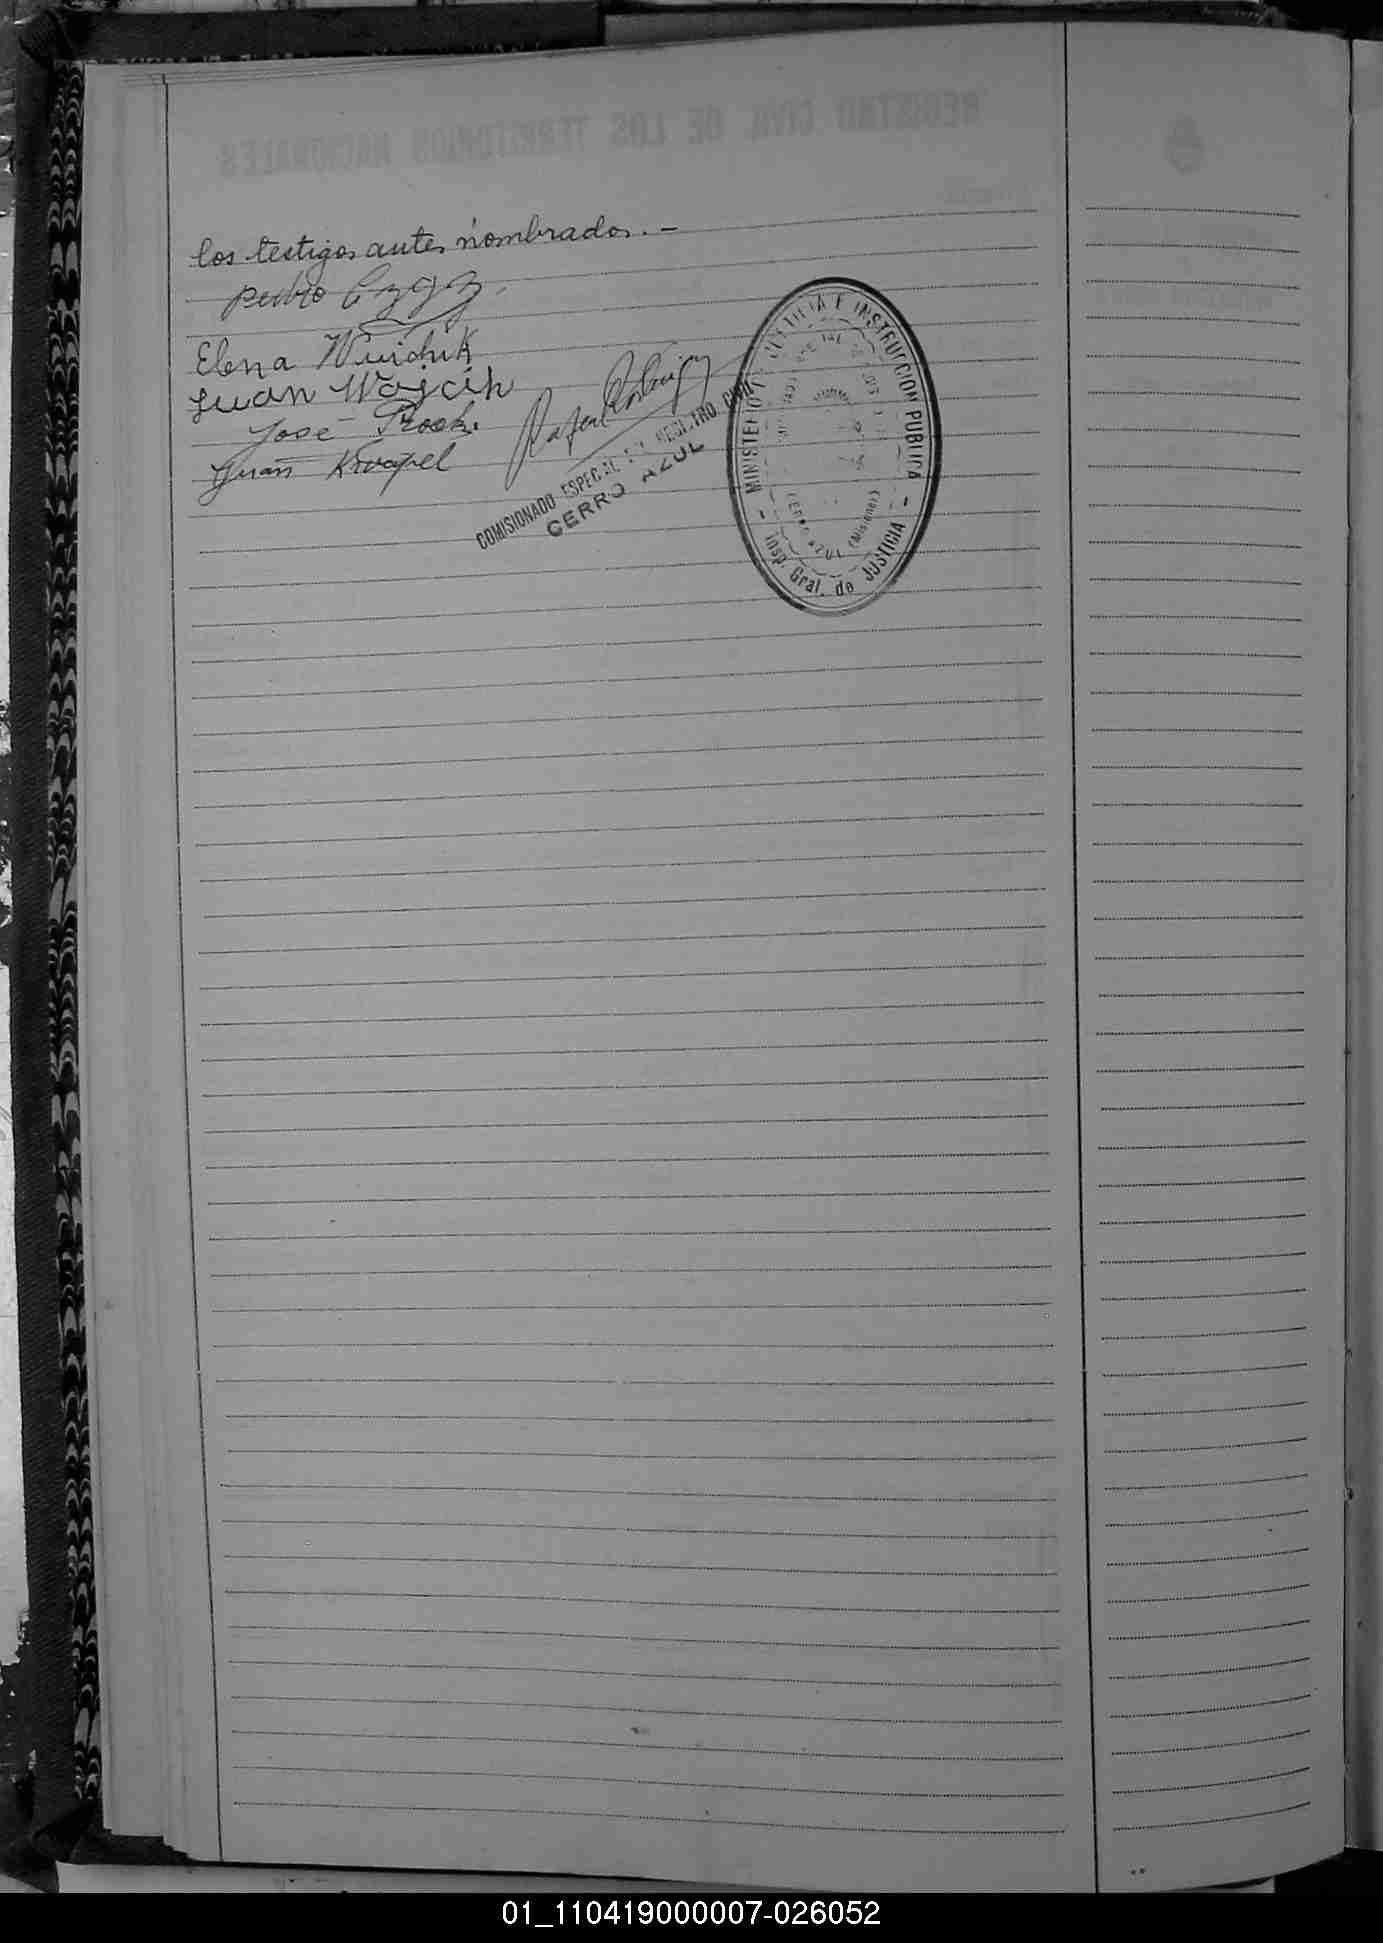 los testigos antes nombrados. -
Pedro
Elena Wuichik
Juan Wojcik
José Prock.
Juan Kvapel
Rafael Rodriguez
COMISIONADO ESPECIAL DEL REGISTRO CIVIL
CERRO AZUL
MINISTERIO DE JUSTICIA E INSTRUCCION PUBLICA
- Insp. Gral. de JUSTICIA -
CERRO AZUL (Misiones)
01_110419000007-026052